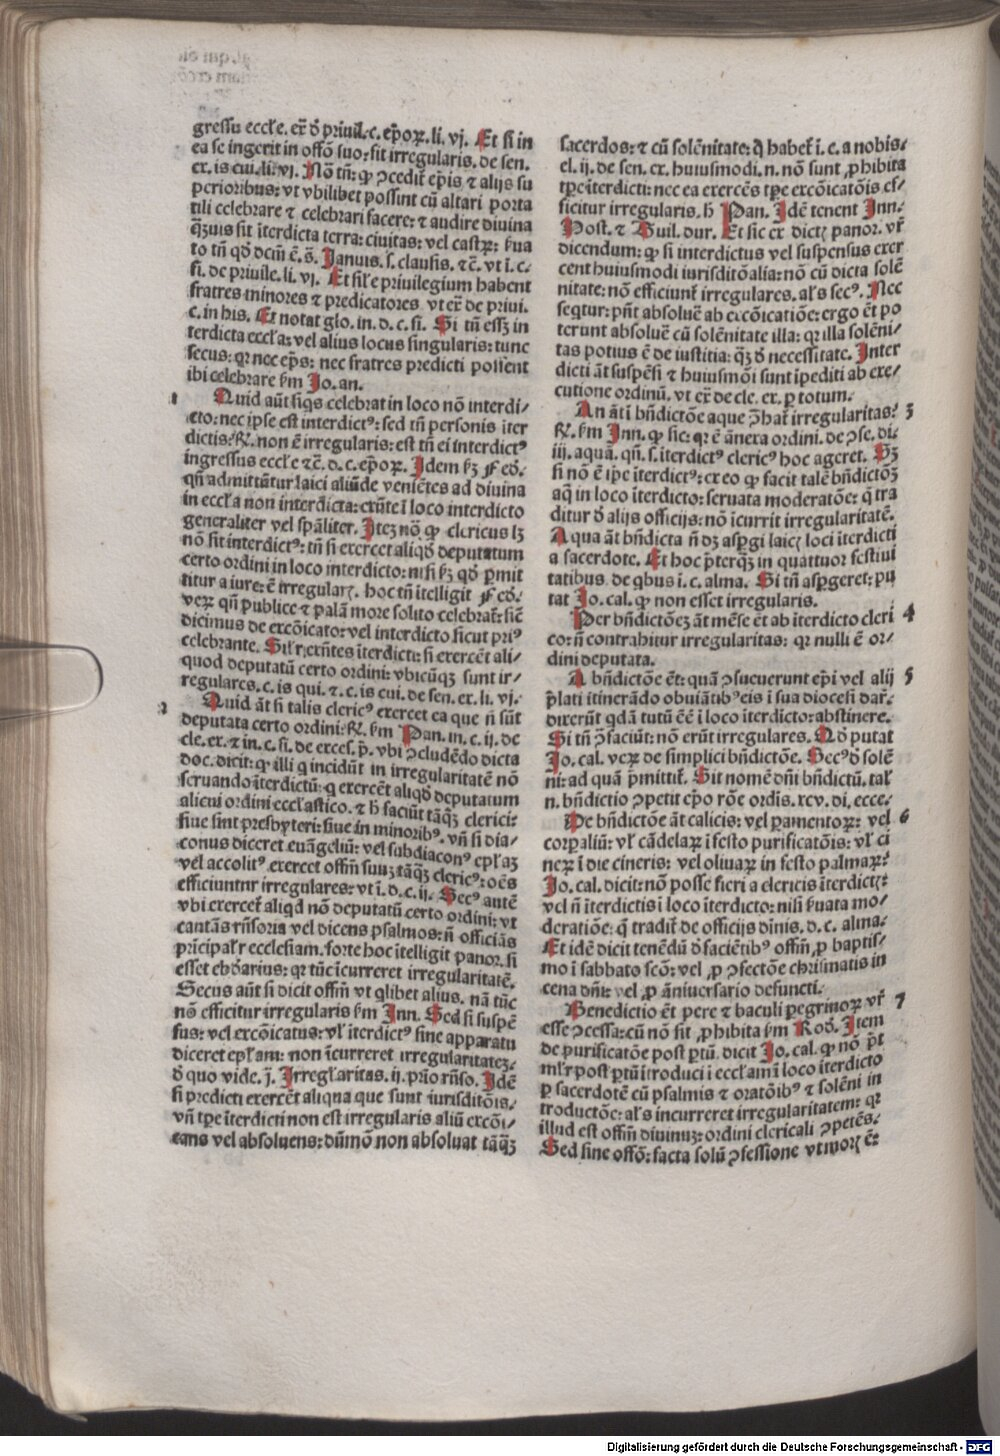 gressu eccl'e. ex̄ d̄ priuil. c. ep̄oꝝ. li. vj. Et si in
ea se ingerit in offō suo: sit irregularis. de sen.
ex. is cui. li. vj. Nō tn̄: ꝙ ꝯcedit̄ ep̄is ⁊ alijs su
perioribus: vt vbilibet possint cū altari porta
tili celebrare ⁊ celebrari facere: ⁊ audire diuina
q̄ꝫuis sit īterdicta terra: ciuitas: vel castꝝ: ẜua
to tn̄ qd̄ dcm̄ ē. s̄. Januis. s. clausis. ⁊c̄. vt ī. c.
si. de priuile. li. vj. Et sil'e priuilegium habent
fratres minores ⁊ predicatores vt ex̄ de priui.
c. in his. Et notat glo. in. d. c. si. Si tn̄ essꝫ in
terdicta eccl'a: vel alius locus singularis: tunc
secus: qꝛ nec ep̄s: nec fratres predicti possent
ibi celebrare ẜm Jo. an.
1 Quid aūt siqs celebrat in loco nō interdi/
cto: nec ipse est interdictꝰ: sed tn̄ personis iter
dictis: ℞. non ē irregularis: est tn̄ ei interdictꝰ
ingressus eccl'e ⁊c̄. d. c. ep̄oꝝ. Idem ẜꝫ Fed.
qn̄ admittūtur laici aliūde veniētes ad diuina
in eccl'a non interdicta: exn̄te ī loco interdicto
generaliter vel spāliter. Itez nō ꝙ clericus lꝫ
nō sit interdictꝰ: tn̄ si exercet aliqd̄ deputatum
certo ordini in loco interdicto: nisi ẜꝫ qd̄ ꝑmit
titur a iure: ē irregularꝭ. hoc tn̄ ītelligit Fed.
veꝝ qn̄ publice ⁊ palā more solito celebrat̄: sic̄
dicimus de excōicato: vel interdicto sicut priꝰ
celebrante. Sil'r exn̄tes īterdicti: si exercēt ali/
quod deputatū certo ordini: vbicūqꝫ sunt ir/
regulares. c. is qui. ⁊. c. is cui. de sen. ex. li. vj.
2 Quid āt si talis clericꝰ exercet ea que n̄ sūt
deputata certo ordini: ℞. ẜm Pan. in. c. ij. de
cle. ex. ⁊ in. c. si. de exces. p̄. vbi ꝯcludēdo dicta
doc. dicit: ꝙ illi q incidūt in irregularitatē nō
seruando īterdictū: q exercēt aliqd̄ deputatum
alicui ordini eccl'astico. ⁊ h̄ faciūt tāqꝫ clerici:
siue sint presbyteri: siue in minoribꝰ. vn̄ si dia/
conus diceret euāgeliū: vel subdiaconꝰ epl'aꝫ
vel accolitꝰ exercet offm̄ suuꝫ tāqꝫ clericꝰ: oēs
efficiuntur irregulares: vt ī. d. c. ij. Secꝰ autē
vbi exercet̄ aliqd̄ nō deputatū certo ordini: vt
cantās rn̄soria vel dicens psalmos: n̄ officiās
prīcipal'r ecclesiam. forte hoc ītelligit panor. si
esset ebd̄arius: qꝛ tūc īcurreret irregularitatē.
Secus aūt si dicit offm̄ vt qlibet alius. nā tūc
nō efficitur irregularis ẜm Inn. Sed si suspē
sus: vel excōicatus: vl' īterdictꝰ sine apparatu
diceret epl'am: non īcurreret irregularitateꝫ.
d̄ quo vide. j̄. Irregl'aritas. ij. prīo rn̄so. Idē
si predicti exercēt aliqua que sunt iurisditōis/
vn̄ tꝑe īterdicti non est irregularis aliū excōi/
cans vel absoluens: dūmō non absoluat tāqꝫ
sacerdos: ⁊ cū solēnitate: q̄ habet̄ ī. c. a nobis/
el. ij. de sen. ex. huiusmodi. n. nō sunt ꝓhibita
tꝑe īterdicti: nec ea exercēs tꝑe excōicatōis ef/
ficitur irregularis. h̄ Pan. Idē tenent Inn.
Host. ⁊ Guil. dur. Et sic ex dictꝭ panor. vr̄
dicendum: ꝙ si interdictus vel suspensus exer
cent huiusmodi iurisditōalia: nō cū dicta solē
nitate: nō efficiunt̄ irregulares. al's secꝰ. Nec
seqtur: pn̄t absoluē ab excōicatiōe: ergo ēt po
terunt absoluē cū solēnitate illa: qꝛ illa solēni/
tas potius ē de iustitia: qꝫ d̄ necessitate. Inter
dicti āt suspēsi ⁊ huiusmōi sunt īpediti ab exe/
cutione ordinū, vt ex̄ de cle. ex. ꝑ totum.
An āt ī bn̄dictōe aque ꝯ̄hat̄ irregularitas: 3
℞. ẜm Inn. ꝙ sic: qꝛ ē ānexa ordini. de ꝯse. di.
iij. aquā. qn̄. s. īterdictꝰ clericꝰ hoc ageret. Sꝫ
si nō ē ip̄e īterdictꝰ: ex eo ꝙ facit talē bn̄dictōꝫ
aq̄ in loco īterdicto: seruata moderatōe: q̄ tra
ditur d̄ alijs officijs: nō īcurrit irregularitatē.
Aqua āt bn̄dicta n̄ dꝫ aspgi laicꝭ loci īterdicti
a sacerdote. Et hoc p̄terqꝫ in quattuor festiui
tatibus. de qbus ī. c. alma. Si tn̄ aspgeret: pu
tat Jo. cal. ꝙ non esset irregularis.
Per bn̄dictōeꝫ āt mēse ēt ab īterdicto cleri 4
co: n̄ contrahitur irregularitas: qꝛ nulli ē or/
dini deputata.
A bn̄dictōe ēt: quā ꝯsueuerunt ep̄i vel alij 5
p̄lati itinerādo obuiātibꝰ eis ī sua diocesi dar̄.
dixerūt qdā tutū ēē ī loco īterdicto: abstinere.
Si tn̄ ꝯ̄faciūt: nō erūt irregulares. Qd̄ putat
Jo. cal. veꝝ de simplici bn̄dictōe. Secꝰ d̄ solē
ni: ad quā p̄mittit̄. Sit nomē dn̄i bn̄dictū. tal'
n. bn̄dictio ꝯpetit ep̄o rōe ordis. xcv. di. ecce.
De bn̄dictōe āt calicis: vel ꝑamentoꝝ: vel 6
corꝑaliū: vl' cādelaꝝ ī festo purificatōis: vl' ci
neꝝ ī die cineris: vel oliuaꝝ in festo palmaꝝ:
Jo. cal. dicit: nō posse fieri a clericis īterdictꝭ:
vel n̄ īterdictis ī loco īterdicto: nisi ẜuata mo/
deratiōe: q̄ tradit̄ de officijs diīnis. d. c. alma.
Et idē dicit tenēdū d̄ faciētibꝰ offm̄ ꝓ baptis/
mo ī sabbato scō: vel ꝓ ꝯfectōe chrismatis in
cena dn̄i: vel ꝓ āniuersario defuncti.
Benedictio ēt pere ⁊ baculi pegrinoꝝ vr̄ 7
esse ꝯcessa: cū nō sit ꝓhibita ẜm Rod. Item
de purificatōe post ꝑtū. dicit Jo. cal. ꝙ nō p̄t
ml'r post ꝑtū ītroduci ī eccl'am ī loco īterdicto
ꝑ sacerdotē cū psalmis ⁊ oratōibꝰ ⁊ solēni in
troductōe: al's incurreret irregularitatem: qꝛ
illud est offm̄ diuinuꝫ: ordini clericali ꝯpetēs.
Sed sine offō: facta solū ꝯfessione vt morꝭ ē:
Digitalisierung gefördert durch die Deutsche Forschungsgemeinschaft - DFG